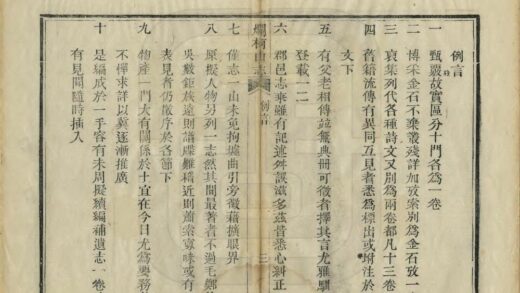 例言
一 甄嚴故實區分十門各爲一卷
二 博采金石不棄叢殘詳加攷案別爲金石攷一
三 裒集列代各種詩文又別爲兩卷都凡十三卷
四 舊籍流傳有異同互見者悉爲標出或坿注於
文下
五 有父老相傳無典冊可徵者擇其言尤雅馴
登載一二
六 郡邑志乘雖有記述舛誤滋多茲皆悉心糾正
爛柯山志 例言 三
七 僅志一山未免拘墟曲引旁徵藉擴眼界
八 原擬人物另列一志然其間最著者不過毛鄭
吳數鉅族遠則譜牒難稽近則蕭索寡味或有
表見者仍散序於各節下
九 物產一門大有關係於土宜在今日尤爲要務
不憚求詳以冀逐漸推廣
十 是編成於一手容有未周擬續編補遺志一卷
有見聞隨時插入